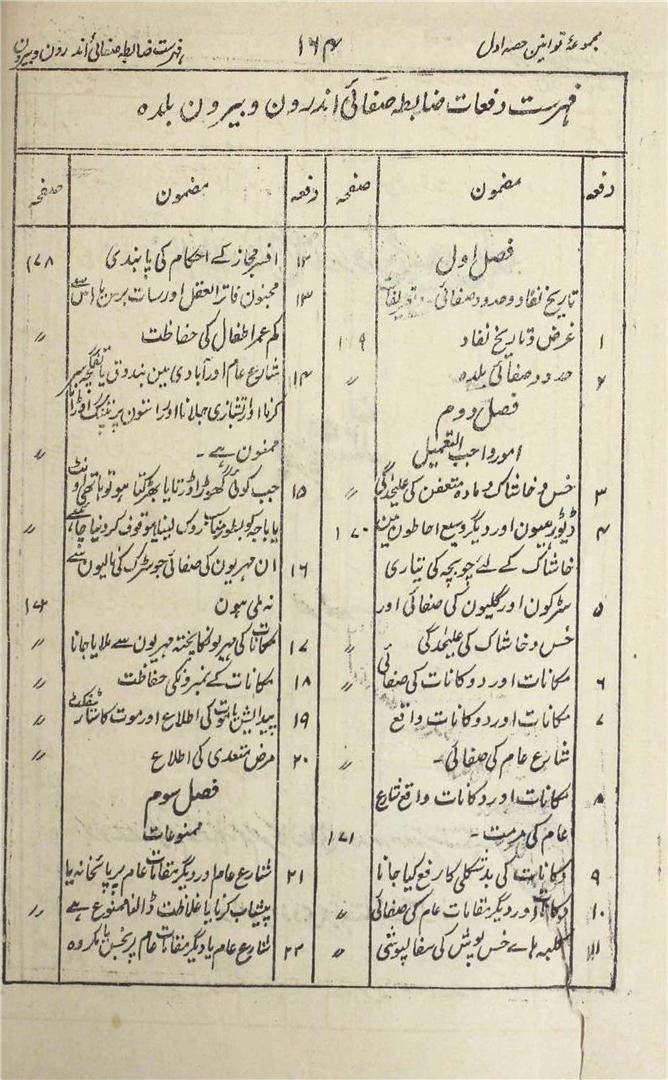 مجموعۂ قوانین حصہ اول
۱۶۴
فہرست ضابطہ صفائی اندرون وبیرون
فہرست دفعات ضابطہ صفائی اندرون وبیرون بلدہ
دفعہ مضمون صفحہ
فصل اول
تاریخ نفاذ وحدود صفائی۔ وتعریفات
۱ غرض وتاریخ نفاد ۱۶۹
۲ حدود صفائی بلدہ 〃
فصل دوم
امور واجب التعمیل
۳ خس وخاشاک ومادہ متعفن کی علیحدگی 〃
۴ ڈیوڑہیون اور دیگر وسیع احاطون مین ۱۷۰
خاشاک کے لئے چوبچہ کی تیاری
۵ سڑکون اور گلیون کی صفائی اور
خس وخاشاک کی علیحدگی 〃
۶ مکانات اور دوکانات کی صفائی 〃
۷ مکانات اور دوکانات واقع
شارع عام کی صفائی۔ 〃
۸ مکانات اور دکانات واقع شارع
عام کی مرمت۔ ۱۷۱
۹ دکانات کی بدشکلی کا رفع کیا جانا
۱۰ دکانات اور دیگر مقامات عام کی صفائی 〃
۱۱ کلبہ ہاے خس پوش کی سفالپوشی 〃
دفعہ مضمون صفحہ
۱۲ افسر مجاز کے احکام کی پابندی ۱۷۸
۱۳ مجنون فاتر العقل اور سات برس یا اس سے
کم عمر اطفال کی حفاظت 〃
۱۴ شارع عام اور آبادی مین بندوق یا تفنگچہ سر
کرنا اور آتشبازی جلانا اور راستون پر پتنگ اوڑانا
ممنون ہے۔ 〃
۱۵ جب کوئی گھوڑا ڈرتا یا بھڑکتا ہو تو ہاتھی اونٹ
یا باجہ کو بطور مناسب روک لینا یا موقوف کردینا چاہئے 〃
۱۶ ان مہریون کی صفائی جو سڑک کی نالیون سے
نہ ملی ہون ۱۷۲
۱۷ مکانات کی مہریونکا پختہ مہریون سے ملایا جانا 〃
۱۸ مکانات کے نمبرونکی حفاظت 〃
۱۹ پیدایش یا موت کی اطلاع اور موت کا سارٹیفکٹ 〃
۲۰ مرض متعدی کی اطلاع 〃
فصل سوم
ممنوعات
۲۱ شارع عام اور دیگر مقامات عام پر پائخانہ یا
پیشاب کرنا یا غلاظت ڈالنا ممنوع ہے 〃
۲۲ شارع عام یا دیگر مقامات عام پر نجس یا مکروہ